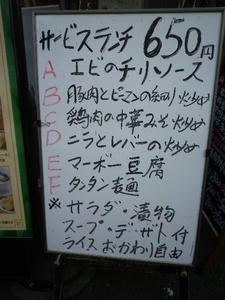 サービスランチ 650円
A エビのチリソース
B 豚肉とピーマンの細切り炒め
C 鶏肉の中華みそ炒め
D ニラとレバーの炒め
E マーボー豆腐
F タンタン麺
※ サラダ・漬物
スープ・デザート付
ライスおかわり自由